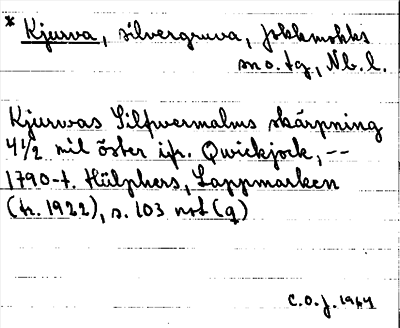 * Kjurva, silvergruva, Jokkmokks
sno.tg, Nb.l.
Kjurwas Silfwermalms skärpning
4 1/2 mil öster ifr. Qwickjock, --
1790-t. Hülphers, Lappmarken
(tr. 1922), s. 103 not (q)
C.O.J. 1964